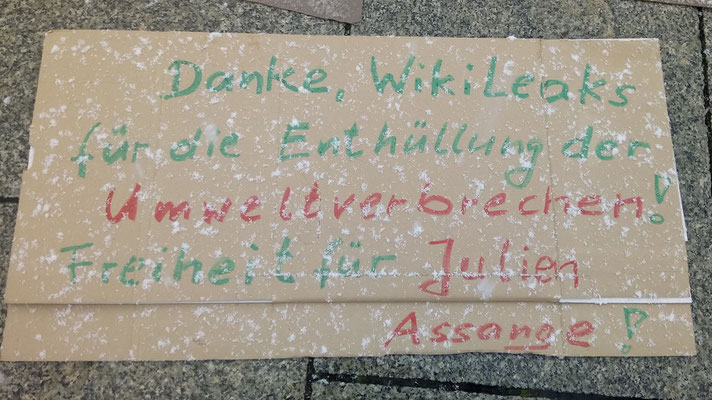 Danke, WikiLeaks
für die Enthüllung der
Umweltverbrechen!
Freiheit für Julien
Assange!